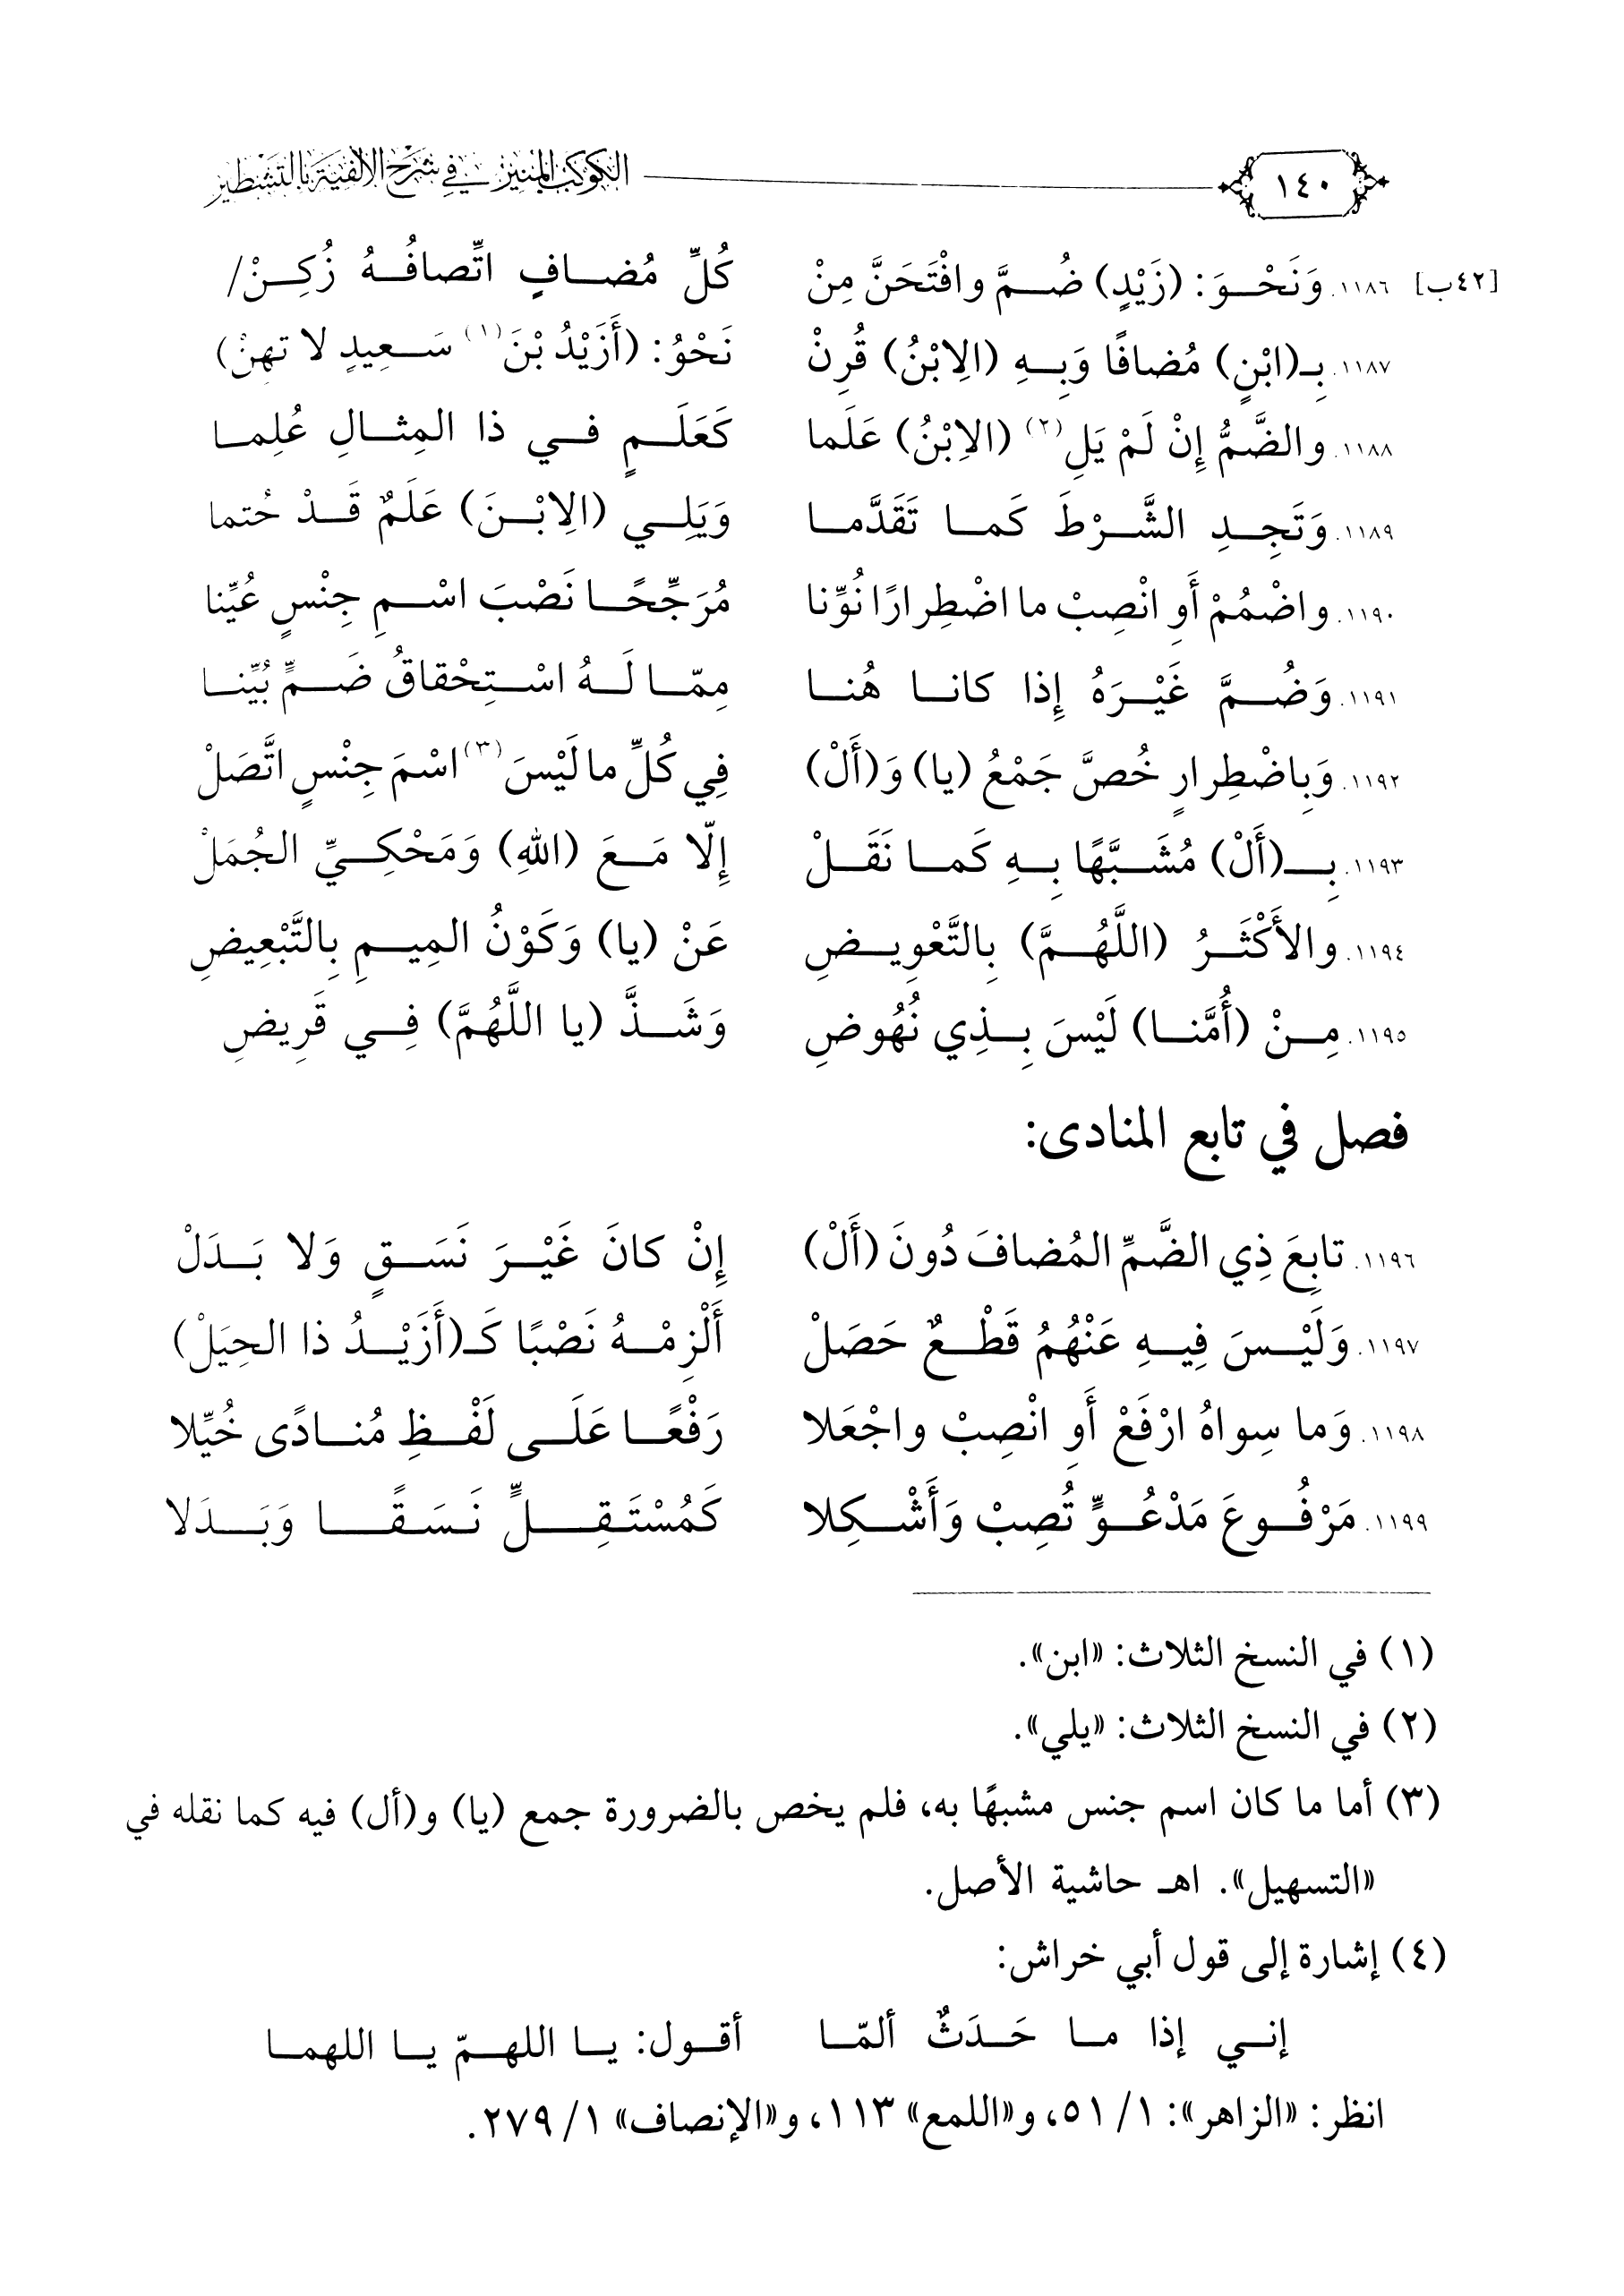 ١٤٠ الكوكب المنير في شرح الألفية بالتشطير
[٤٢ب] ١١٨٦. وَنَحْوَ: (زَيْدٍ) ضُمَّ وافْتَحَنَّ مِنْ كُلِّ مُضافٍ اتِّصافُهُ زُكِنْ/
١١٨٧. بِـ(ابْنٍ) مُضافًا وَبِهِ (الِابْنُ) قُرِنْ نَحْوُ: (أَزَيْدُ بْنَ(١) سَعِيدٍ لا تهِنْ)
١١٨٨. والضَّمُّ إِنْ لَمْ يَلِ(٢) (الِابْنُ) عَلَما كَعَلَمٍ في ذا المِثالِ عُلِما
١١٨٩. وَتَجِدِ الشَّرْطَ كَما تَقَدَّما وَيَلِي (الِابْنَ) عَلَمٌ قَدْ حُتما
١١٩٠. واضْمُمْ أَوِ انْصِبْ ما اضْطِرارًا نُوِّنا مُرَجِّحًا نَصْبَ اسْمِ جِنْسٍ عُيِّنا
١١٩١. وَضُمَّ غَيْرَهُ إِذا كانا هُنا مِمّا لَهُ اسْتِحْقاقُ ضَمٍّ بُيِّنا
١١٩٢. وَبِاضْطِرارٍ خُصَّ جَمْعُ (يا) وَ(أَلْ) فِي كُلِّ ما لَيْسَ(٣) اسْمَ جِنْسٍ اتَّصَلْ
١١٩٣. بِـ(أَلْ) مُشَبَّهًا بِهِ كَما نَقَلْ إِلّا مَعَ (اللهِ) وَمَحْكِيِّ الجُمَلْ
١١٩٤. والأَكْثَرُ (اللَّهُمَّ) بِالتَّعْوِيضِ عَنْ (يا) وَكَوْنُ المِيمِ بِالتَّبْعِيضِ
١١٩٥. مِنْ (أُمَّنا) لَيْسَ بِذِي نُهُوضِ وَشَذَّ (يا اللَّهُمَّ) فِي قَرِيضِ
فصل في تابع المنادى:
١١٩٦. تابِعَ ذِي الضَّمِّ المُضافَ دُونَ (أَلْ) إِنْ كانَ غَيْرَ نَسَقٍ وَلا بَدَلْ
١١٩٧. وَلَيْسَ فِيهِ عَنْهُمُ قَطْعٌ حَصَلْ أَلْزِمْهُ نَصْبًا كَـ(أَزَيْدُ ذا الحِيَلْ)
١١٩٨. وَما سِواهُ ارْفَعْ أَوِ انْصِبْ واجْعَلا رَفْعًا عَلَى لَفْظِ مُنادًى خُيِّلا
١١٩٩. مَرْفُوعَ مَدْعُوٍّ تُصِبْ وَأَشْكِلا كَمُسْتَقِلٍّ نَسَقًا وَبَدَلا
(١) في النسخ الثلاث: «ابن».
(٢) في النسخ الثلاث: «يلي».
(٣) أما ما كان اسم جنس مشبهًا به، فلم يخص بالضرورة جمع (يا) و(أل) فيه كما نقله في
«التسهيل». اهـ حاشية الأصل.
(٤) إشارة إلى قول أبي خراش:
إني إذا ما حَدَثٌ ألمّا أقول: يا اللهمّ يا اللهما
انظر: «الزاهر»: ١/ ٥١، و«اللمع» ١١٣، و«الإنصاف» ١/ ٢٧٩.